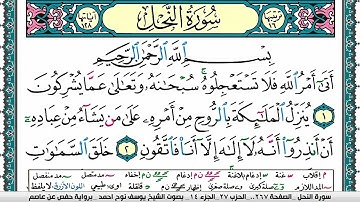 سُورَةُ النَّحْلِ
بِسْمِ اللَّهِ الرَّحْمَٰنِ الرَّحِيمِ
أَتَىٰ أَمْرُ اللَّهِ فَلَا تَسْتَعْجِلُوهُ سُبْحَانَهُ وَتَعَالَىٰ عَمَّا يُشْرِكُونَ
١ يُنَزِّلُ الْمَلَائِكَةَ بِالرُّوحِ مِنْ أَمْرِهِ عَلَىٰ مَنْ يَشَاءُ مِنْ عِبَادِهِ
أَنْ أَنْذِرُوا أَنَّهُ لَا إِلَٰهَ إِلَّا أَنَا فَاتَّقُونِ ٢ خَلَقَ السَّمَاوَاتِ
سورة النحل الصفحة ٢٦٧ الحزب ٢٧ الجزء ١٤ بصوت الشيخ يوسف نوح احمد برواية حفص عن عاصم